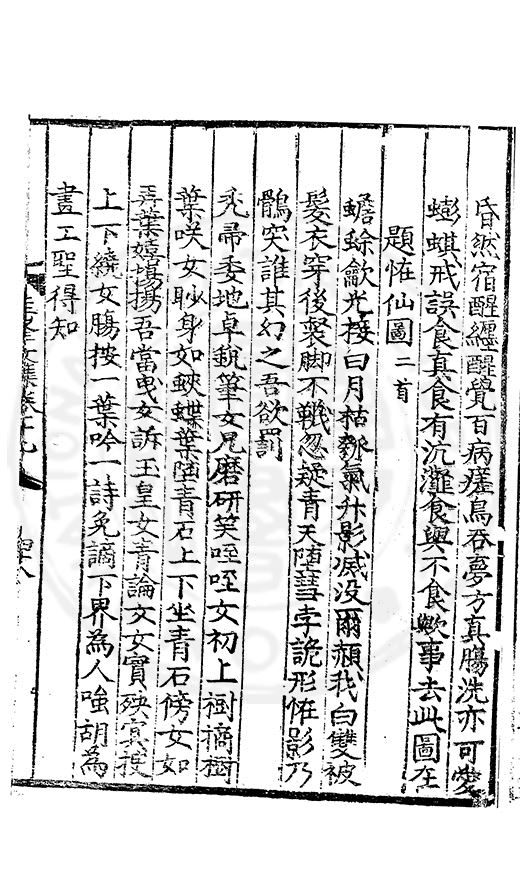 昏然宿酲纏醒覺百病瘥鳥吞夢方真腸洗亦可愛
蟛蜞戒誤食真食有沉灘食與不食歟事去此圖在
題恠仙圖二首
蟾蜍歙光接白月枯瓠氣升影滅没爾顏我白雙被
髮衣穿後褧脚不韈忽疑青天墮彗孛詭形恠影乃
鶻突誰其幻之吾欲罰
禿帚委地卓銳筆女凭磨研笑咥咥女初上樹摘樹
葉咲女眇身如蛺蝶葉墮青石上下坐青石傍女如
弄葉嬉揚揚吾當曳女訴玉皇女青論文女實殃寘
上下繞女腸按一葉吟一詩免謫下界為人嗤胡為
畫工聖得知
文集卷十九
四十八